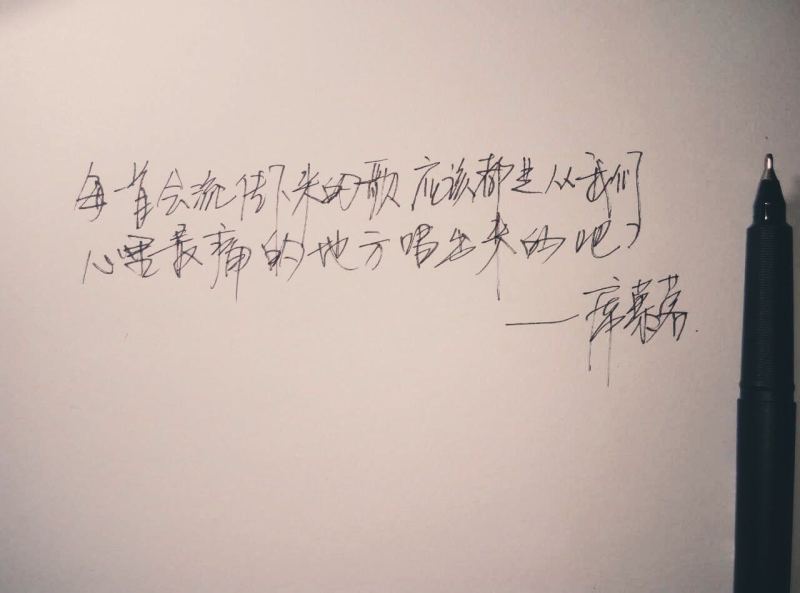 每首会流传下来的歌应该都是从我们
心里最痛的地方唱出来的吧？
——席慕蓉.